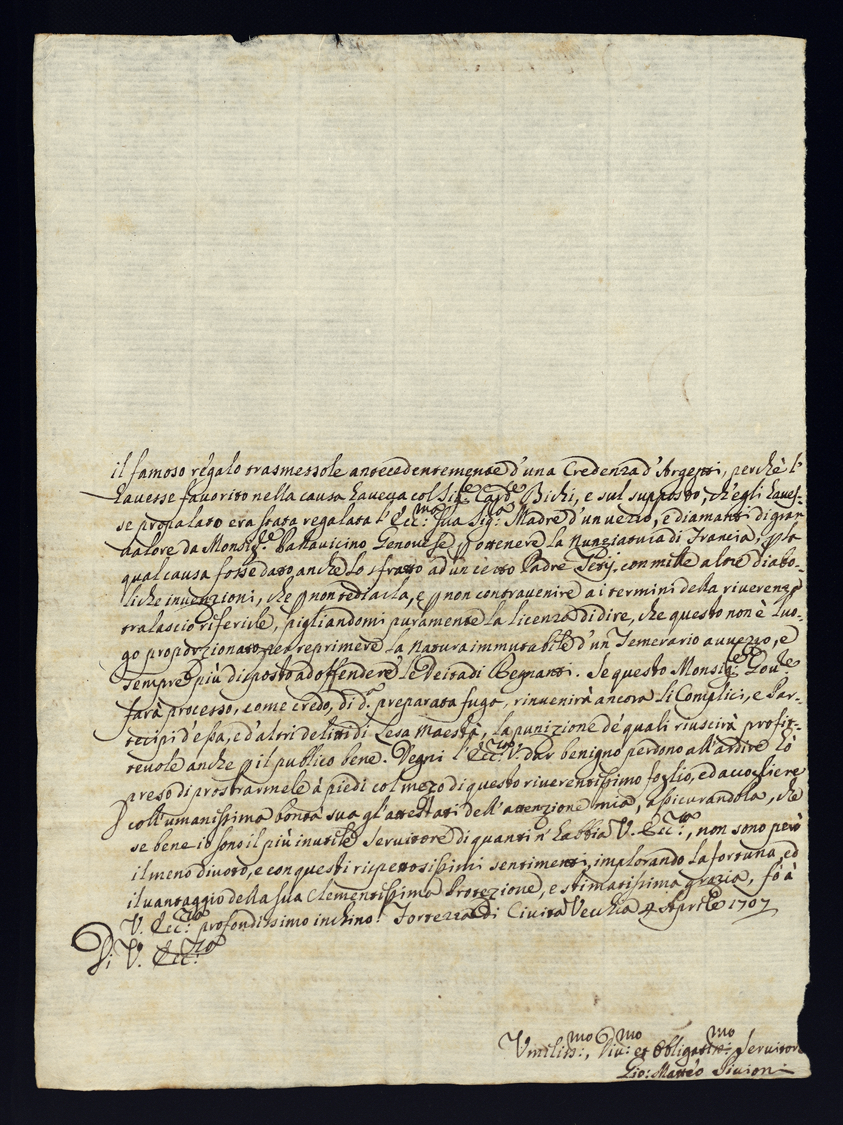 il famoso regalo trasmessole antecedentemente d'una Credenza d'Argenti, perchè l'
havesse favorito nella causa haveva col Sig.re Card.le Bichi, e sul supposto, ch'egli haves-
se propalato era stata regalata l'Ecc.ma sua Sig.ra Madre d'un vezzo, e diamanti di gran
valore da Monsig.re Pallavicino Genovese p ottenere la Nunziatura di Francia, p la
qual causa fosse dato anche lo sfratto ad un certo Padre, con mille altre diabo-
liche invenzioni, che p non tediarla, e p non contravenire a i termini della riverenza
tralascio riferirle, pigliandomi puramente la licenza di dire, che questo non è luo-
go proporzionato per reprimere la natura immutabile d'un Temerario avvezzo, e
sempre più disposto ad offendere le Deità di Regnanti. Se questo Monsig.re Gov.re
farà processo, come credo, di d.a preparata fuga, rinvenirà ancora li Complici, e Par-
tecipi d'essa, ed'altri delitti di Lesa Maestà, la punizione de quali riuscirà profit-
tevole anche p il publico bene. Degni l'Ecc.za V. dar benigno perdono all'ardire hò
preso di prostrarmele à piedi col mezo di questo riverentissimo foglio, ed accogliere
coll'umanissima bontà sua gl'attestati dell'attenzione mia, assicurandola, che
se bene io sono il più inutile Servitore di quanti n'habbia V. Ecc.za, non sono però
il meno divoto, e con questi rispettosissimi sentimenti, implorando la fortuna, ed
il vantaggio della sua Clementissima Protezione, e stimatissima grazia, fò à
V. Ecc.za profondissimo inchino. Fortezza di Civita Vecchia 4 Aprile 1707
Di V. Ecc.za
Umiliss.mo, Div.mo et Obligatis.mo Servitore
Gio: Matteo